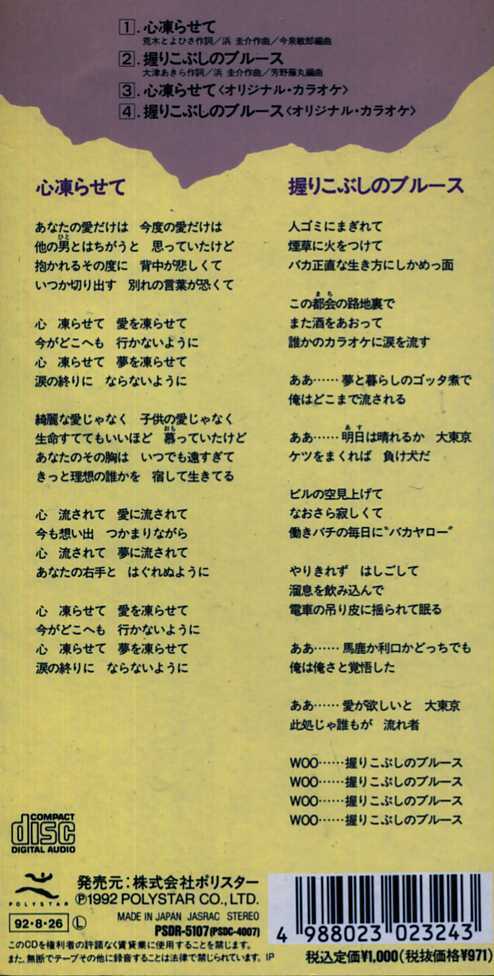 1. 心凍らせて
荒木とよひさ作詞／浜 圭介作曲／今泉敏郎編曲
2. 握りこぶしのブルース
大津あきら作詞／浜 圭介作曲／芳野藤丸編曲
3. 心凍らせて〈オリジナル・カラオケ〉
4. 握りこぶしのブルース〈オリジナル・カラオケ〉
心凍らせて
あなたの愛だけは 今度の愛だけは
ひと
他の男とはちがうと 思っていたけど
抱かれるその度に 背中が悲しくて
いつか切り出す 別れの言葉が恐くて
心 凍らせて 愛を凍らせて
今がどこへも 行かないように
心 凍らせて 夢を凍らせて
涙の終りに ならないように
綺麗な愛じゃなく 子供の愛じゃなく
おも
生命すててもいいほど 慕っていたけど
あなたのその胸は いつでも遠すぎて
きっと理想の誰かを 宿して生きてる
心 流されて 愛に流されて
今も想い出 つかまりながら
心 流されて 夢に流されて
あなたの右手と はぐれぬように
心 凍らせて 愛を凍らせて
今がどこへも 行かないように
心 凍らせて 夢を凍らせて
涙の終りに ならないように
握りこぶしのブルース
人ゴミにまぎれて
煙草に火をつけて
バカ正直な生き方にしかめっ面
まち
この都会の路地裏で
また酒をあおって
誰かのカラオケに涙を流す
ああ……夢と暮らしのゴッタ煮で
俺はどこまで流される
あす
ああ……明日は晴れるか 大東京
ケツをまくれば 負け犬だ
ビルの空見上げて
なおさら寂しくて
働きバチの毎日に"バカヤロー"
やりきれず はしごして
溜息を飲み込んで
電車の吊り皮に揺られて眠る
ああ……馬鹿か利口かどっちでも
俺は俺さと覚悟した
ああ……愛が欲しいと 大東京
此処じゃ誰もが 流れ者
WOO……握りこぶしのブルース
WOO……握りこぶしのブルース
WOO……握りこぶしのブルース
WOO……握りこぶしのブルース
COMPACT
disc
DIGITAL AUDIO
POLYSTAR
発売元：株式会社ポリスター
Ⓟ1992 POLYSTAR CO., LTD.
92・8・26 Ⓛ
MADE IN JAPAN JASRAC STEREO
PSDR-5107(PSDC-4007)
このCDを権利者の許諾なく賃貸業に使用することを禁じます。
また、無断でテープその他に録音することは法律で禁じられています。 IP
4 988023 023243
税込定価¥1,000(税抜価格¥971)